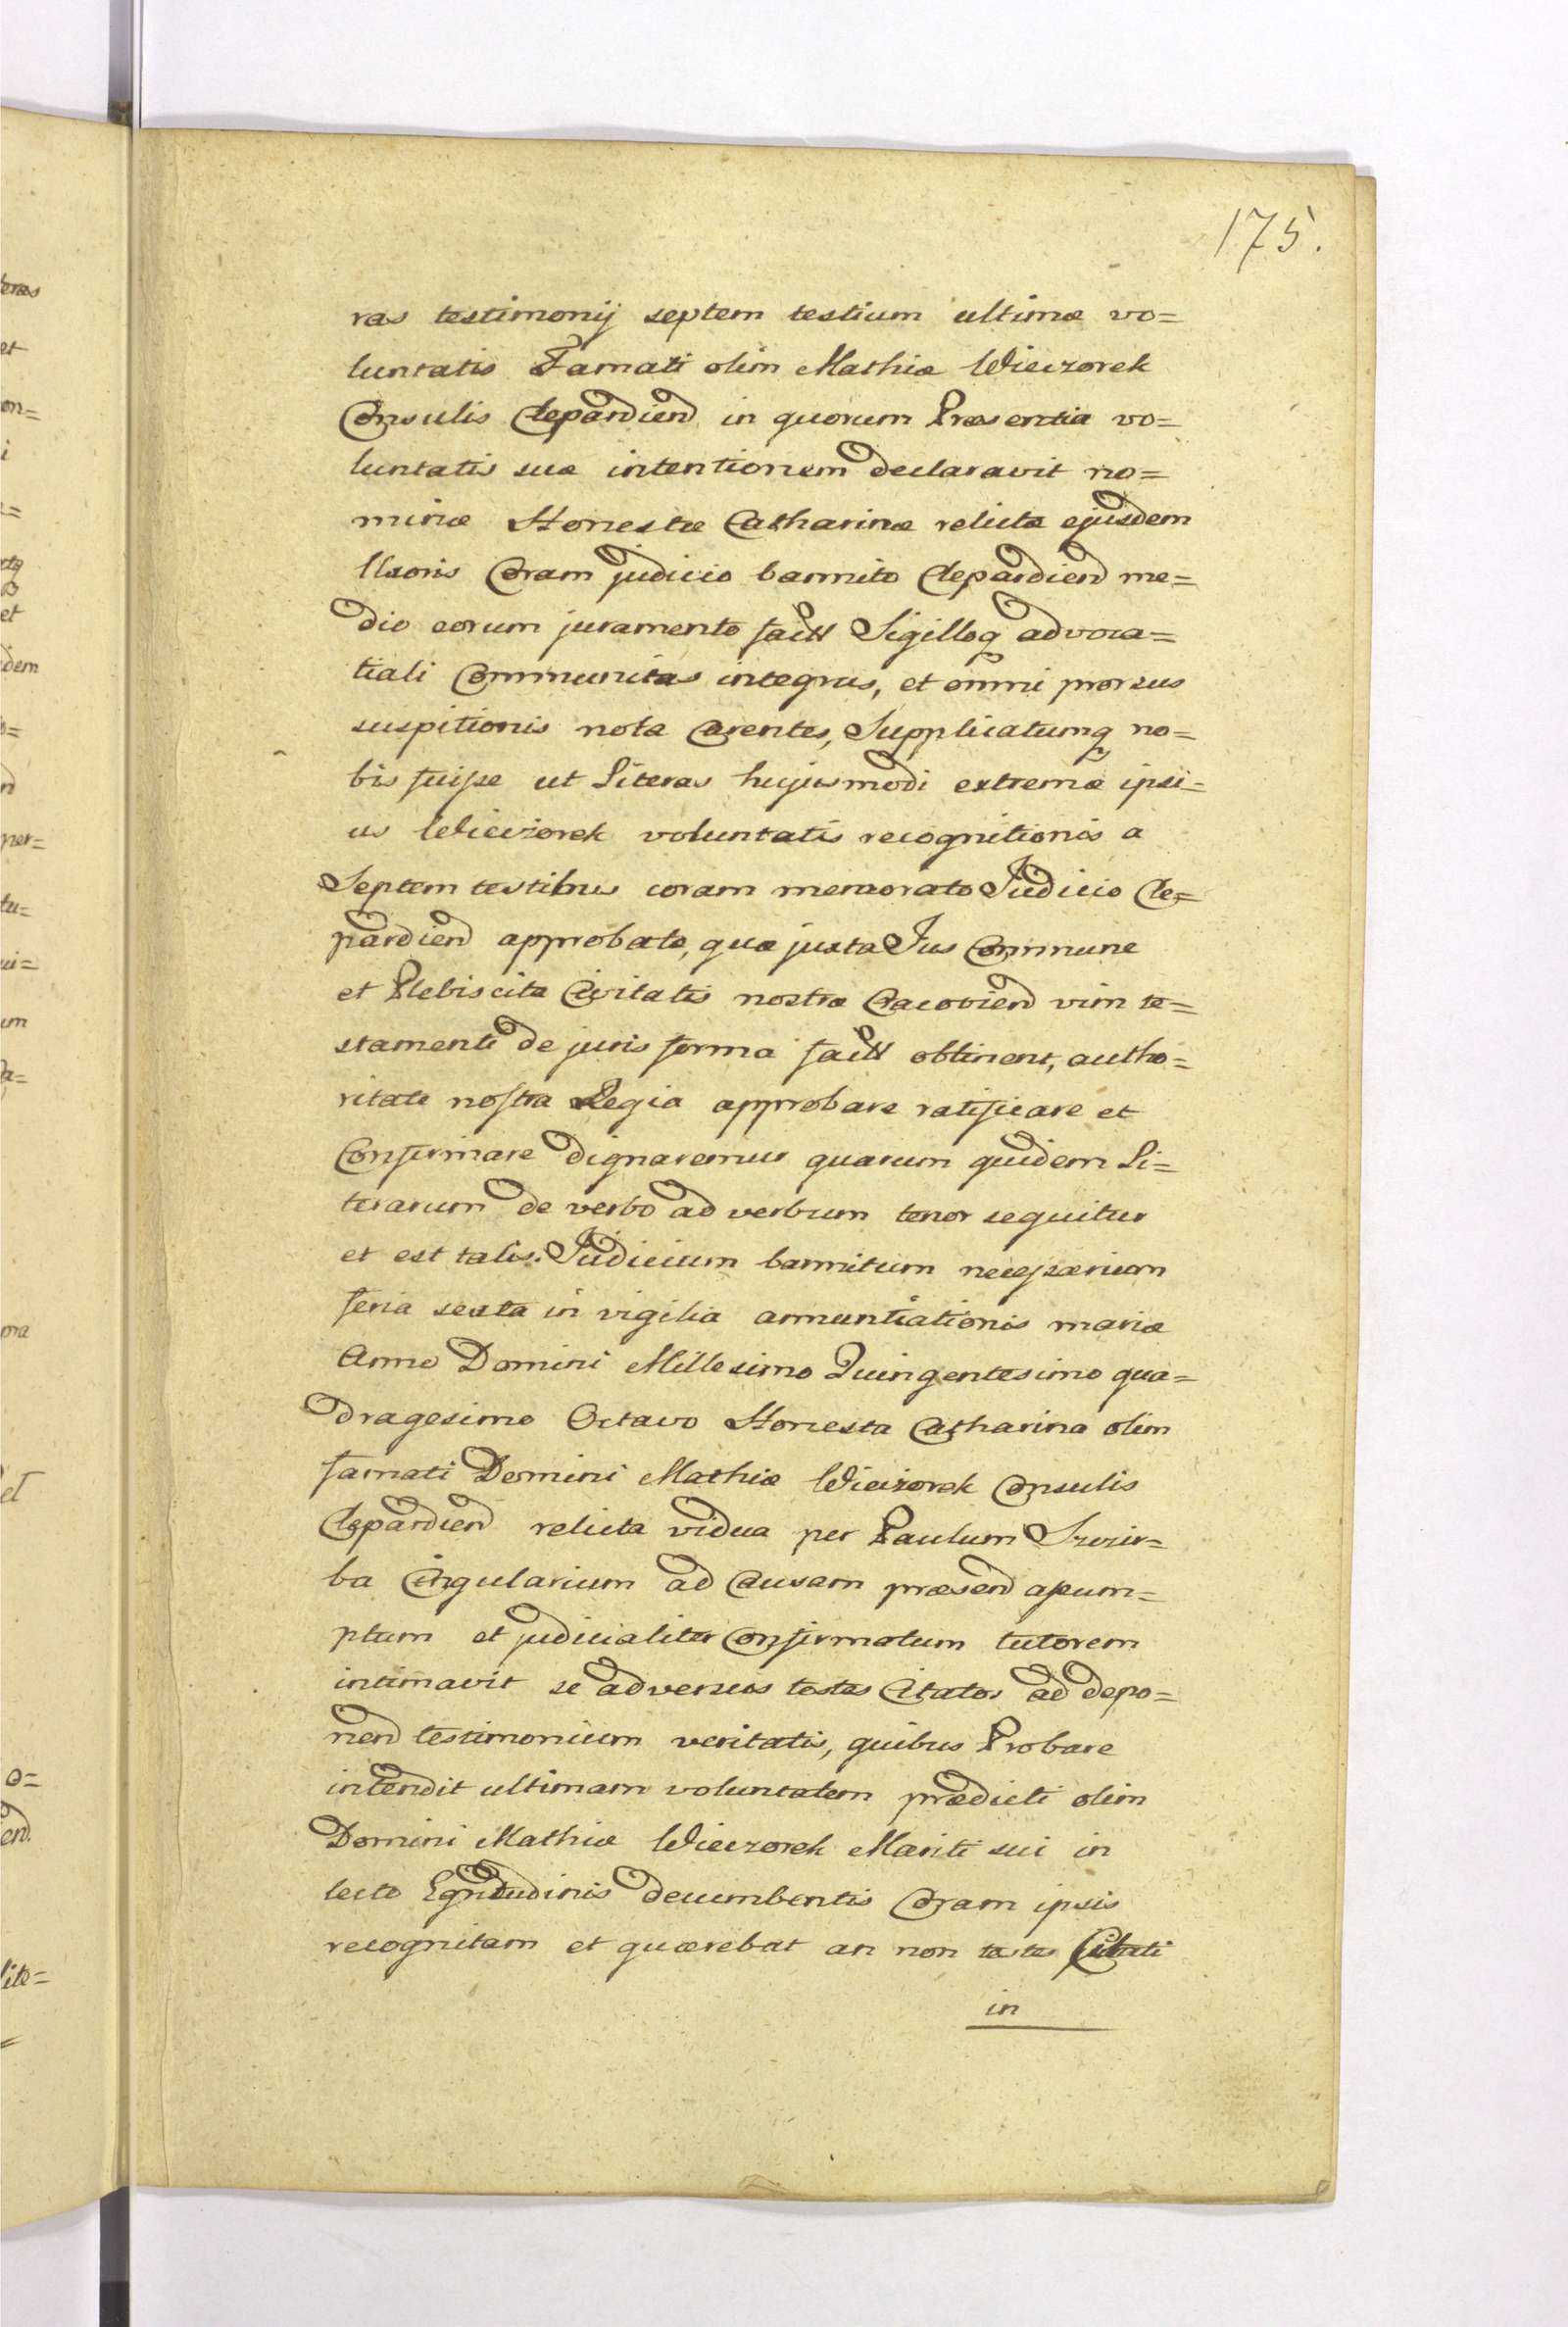 175.
ras testimonij septem testium ultimæ vo=
luntatis Famati olim Mathiæ Wieczorek
Consulis Clepardien in quorum Præsentia vo=
luntatis suæ intentionem declaravit no=
minæ Honestæ Catharinæ relictæ ejusdem
Uxoris Coram judicio bannito Clepardien me=
dio eorum juramento fact Sigilloq advoca=
tiali Communitas integras, et omni prorsus
suspitionis nota Carentes, Supplicatumq no=
bis fuisse ut Literas hujusmodi extremæ ipsi=
us Wieczorek voluntatis recognitionis a
Septem testibus coram memorato Judicio Cle=
pardien approbato, quæ juxta Jus Commune
et Plebiscita Civitatis nostræ Cracovien vim te=
stamenti de juris forma fact obtinent, autho=
ritate nostra Regia approbare ratificare et
Confirmare dignaremur quarum quidem Li=
terarum de verbo ad verbum tenor sequitur
et est talis. Judicium bannitum necessarium
feria sexta in vigilia annuntiationis mariæ
Anno Domini Millesimo Quingentesimo qua=
dragesimo Octavo Honesta Catharina olim
famati Domini Mathiæ Wieczorek Consulis
Clepardien relicta vidua per Paulum Szczir=
ba Cingularium ad Causam præsen assum=
ptum et judicialiter Confirmatum tutorem
intimavit se adversus testes Citatos ad depo=
nen testimonium veritatis, quibus Probare
intendit ultimam voluntatem prædicti olim
Domini Mathiæ Wieczorek Mariti sui in
lecto Egritudinis decumbentis Coram ipsis
recognitam et quærebat an non testes Citati
in